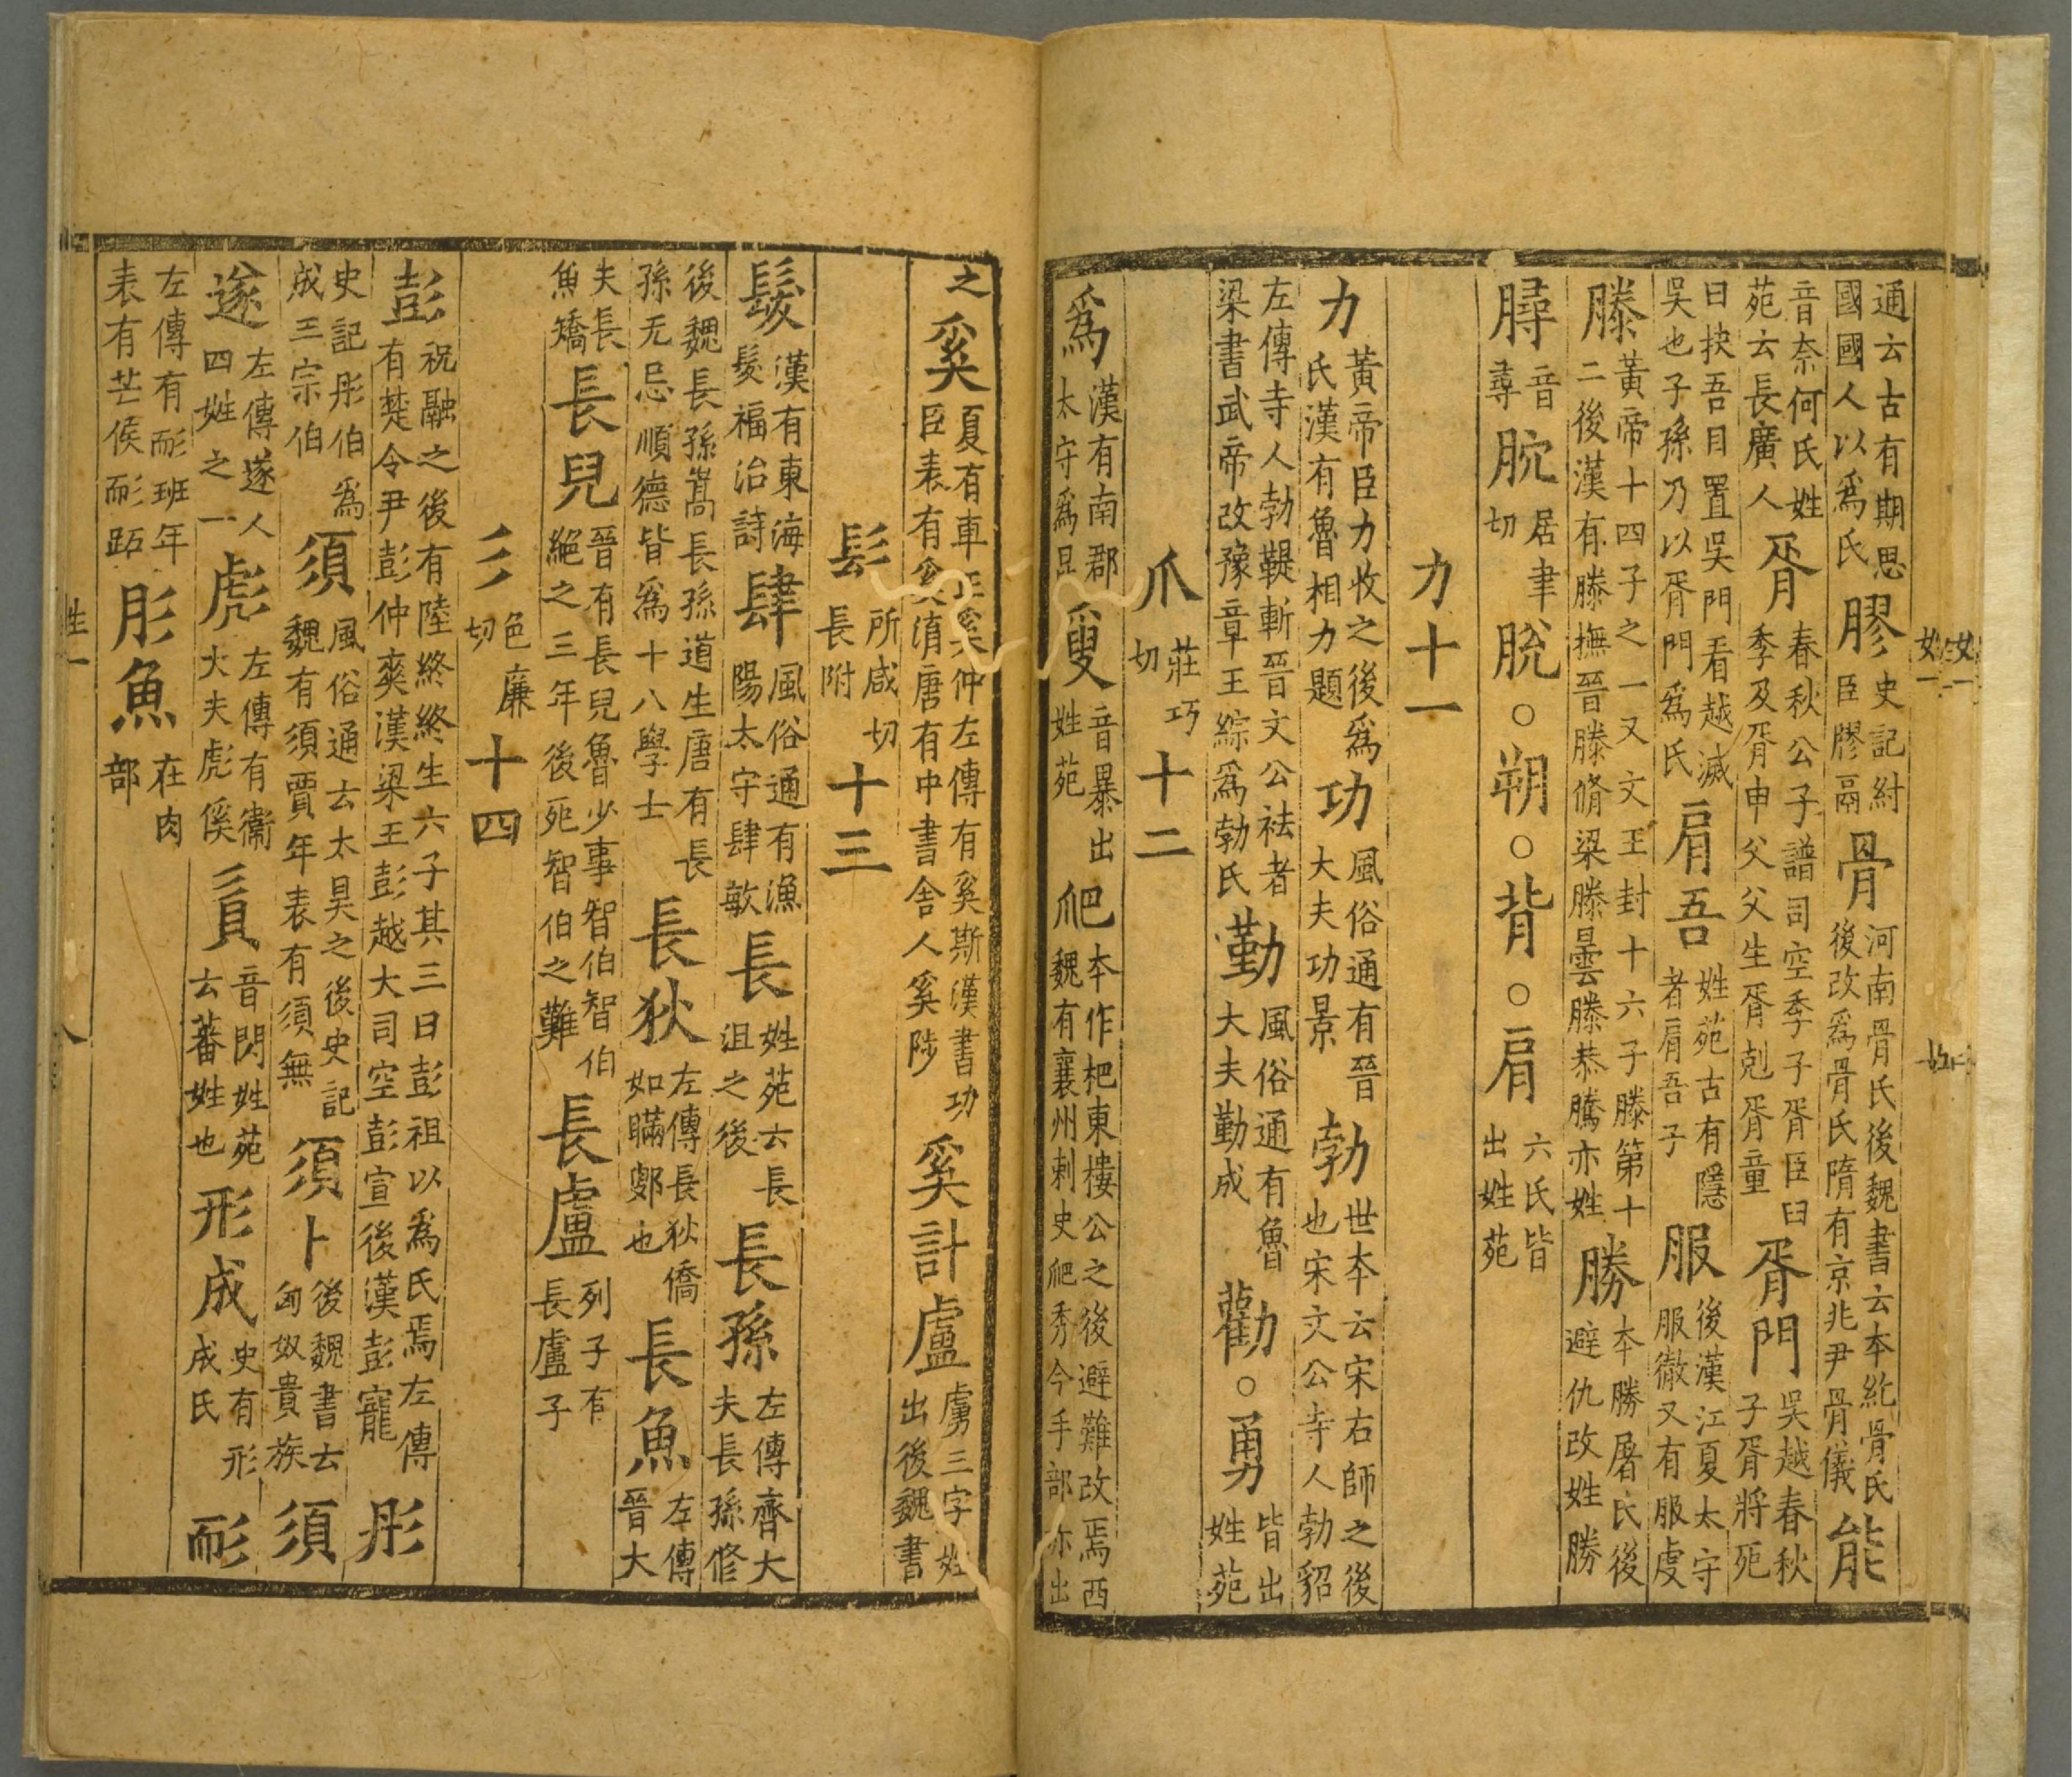 通云古有期思
國國人以爲氏
膠
史記紂
臣膠鬲
骨
河南骨氏後魏書云本紇骨氏
後改爲骨氏隋有京兆尹骨儀
能
音奈何氏姓
苑云長廣人
胥
春秋公子譜司空季子胥臣曰
季及胥申父父生胥剋胥童
胥門
吳越春秋
子胥將死
曰抉吾目置吳門看越滅
吳也子孫乃以胥門爲氏
肩吾
姓苑古有隱
者肩吾子
服
後漢江夏太守
服徹又有服虔
滕
黃帝十四子之一又文王封十六子滕第十
二後漢有滕撫晉滕脩梁滕曇滕恭騰亦姓
勝
本勝屠氏後
避仇改姓勝
㝷
音
尋
脘
居聿
切
脫○朔○背○肩
六氏皆
出姓苑
力十一
力
黃帝臣力收之後爲
氏漢有魯相力題
功
風俗通有晉
大夫功景
勃
世本云宋右師之後
也宋文公寺人勃貂
左傳寺人勃鞮斬晉文公袪者
梁書武帝改豫章王綜爲勃氏
勤
風俗通有魯
大夫勤成
勸○勇
皆出
姓苑
爪
莊巧
切
十二
爲
漢有南郡
太守爲昆
叟
音暴出
姓苑
爬
本作杷東樓公之後避難改焉西
魏有襄州刺史爬秀今手部亦出
之
奚
夏有車正奚仲左傳有奚斯漢書功
臣表有奚涓唐有中書舍人奚陟
奚計盧
虜三字姓
出後魏書
髟
所咸切
長附
十三
髮
漢有東海
髮福治詩
肆
風俗通有漁
陽太守肆敏
長
姓苑云長
沮之後
長孫
左傳齊大
夫長孫修
後魏長孫嵩長孫道生唐有長
孫无忌順德皆爲十八學士
長狄
左傳長狄僑
如瞞鄋也
長魚
左傳
晉大
夫長
魚矯
長兒
晉有長兒魯少事智伯智伯
絕之三年後死智伯之難
長盧
列子有
長盧子
彡
色廉
切
十四
彭
祝融之後有陸終終生六子其三曰彭祖以爲氏焉左傳
有楚令尹彭仲爽漢梁王彭越大司空彭宣後漢彭寵
彤
史記彤伯爲
成王宗伯
須
風俗通云太昊之後史記
魏有須賈年表有須無
須卜
後魏書云
匈奴貴族
須
遂
左傳遂人
四姓之一
彪
左傳有衞
大夫彪傒
䫅
音閃姓苑
云蕃姓也
形成
史有形
成氏
耏
左傳有耏班年
表有芒侯耏跖
肜魚
在肉
部
姓一
八